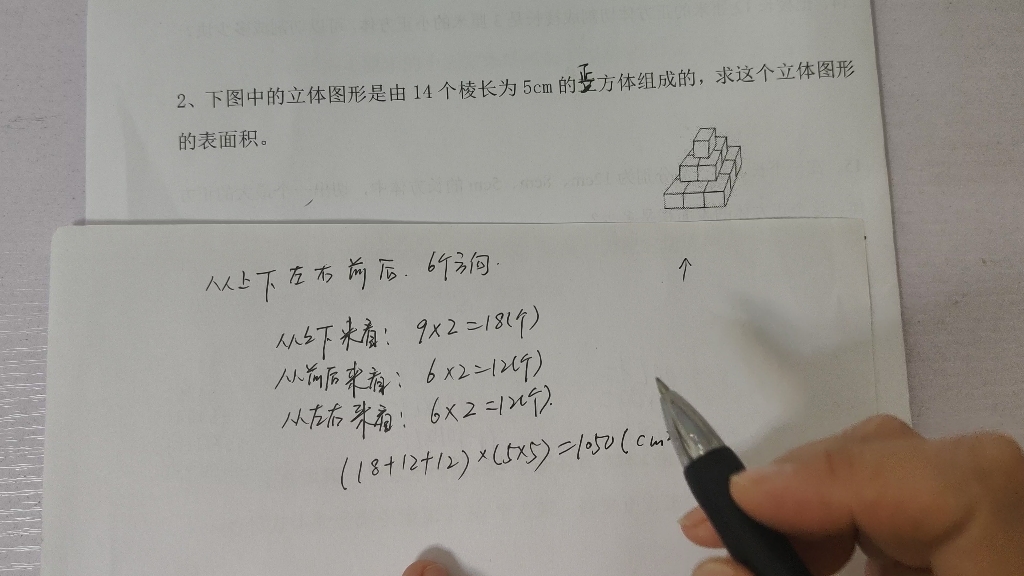 2、下图中的立体图形是由14个棱长为5cm的正方体组成的，求这个立体图形
的表面积。
从上下左右前后. 6个方向.
从上下来看: 9×2=18(个)
从前后来看: 6×2=12(个)
从左右来看: 6×2=12(个).
(18+12+12)×(5×5)=1050(cm²